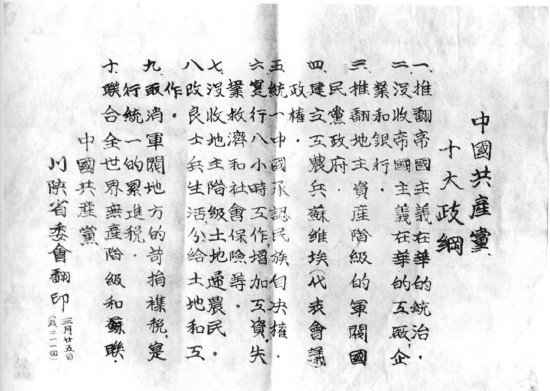 中國共產黨
十大政綱
一、推翻帝國主義在華的統治，
二、沒收帝國主義在華的工廠，企
業和銀行．
三、推翻地主資產階級的軍閥國
民黨政府．
四、建立工農兵蘇維埃（代表會議）
政權．
五統一中國承認民族自決權．
六寔行八小時工作，增加工資，失
業救濟和社會保險等．
七沒收地主階級土地歸農民。
八改良士兵生活分給土地和工
作．
九取消軍閥地方的苛捐襍稅，寔
行統一的累進稅．
十聯合全世界無產階級和蘇聯．
中國共產黨
川陝省委會翻印
三月廿五日